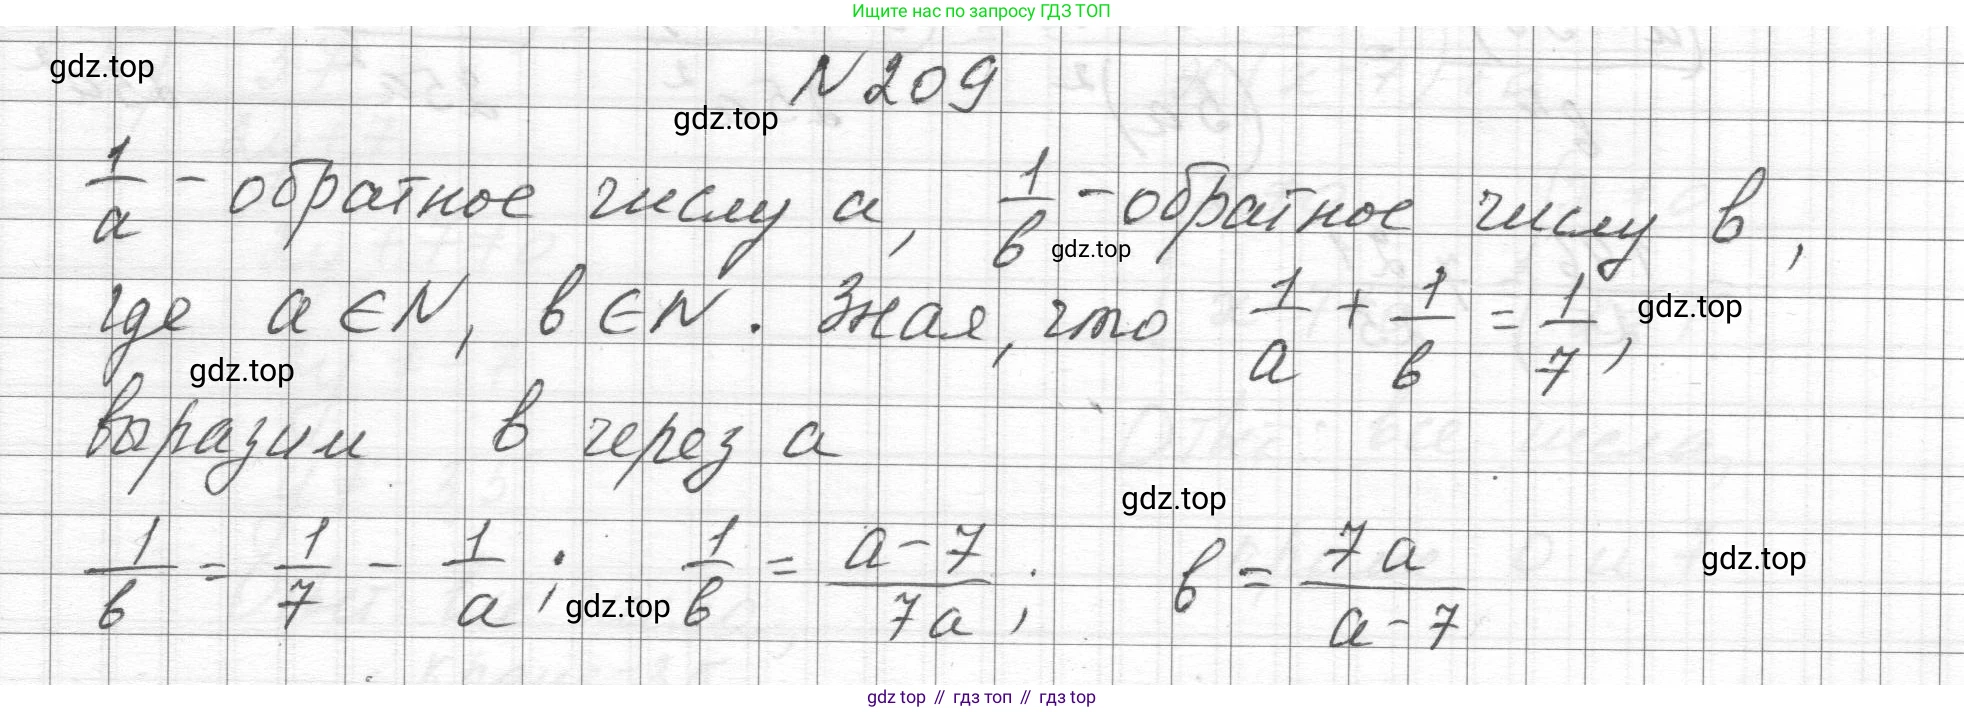 Ищите нас по запросу ГДЗ ТОП
gdz.top
N 209
gdz.top
1/a - обратное числу a, 1/в - обратное числу в,
gdz.top
где a ∈ N, в ∈ N. Зная, что 1/a + 1/в = 1/7,
gdz.top
gdz.top
выразим в через a
gdz.top
1/в = 1/7 - 1/a; 1/в = (a-7)/7a; в = 7a/(a-7)
gdz.top
gdz.top
gdz top // гдз топ // гдз top